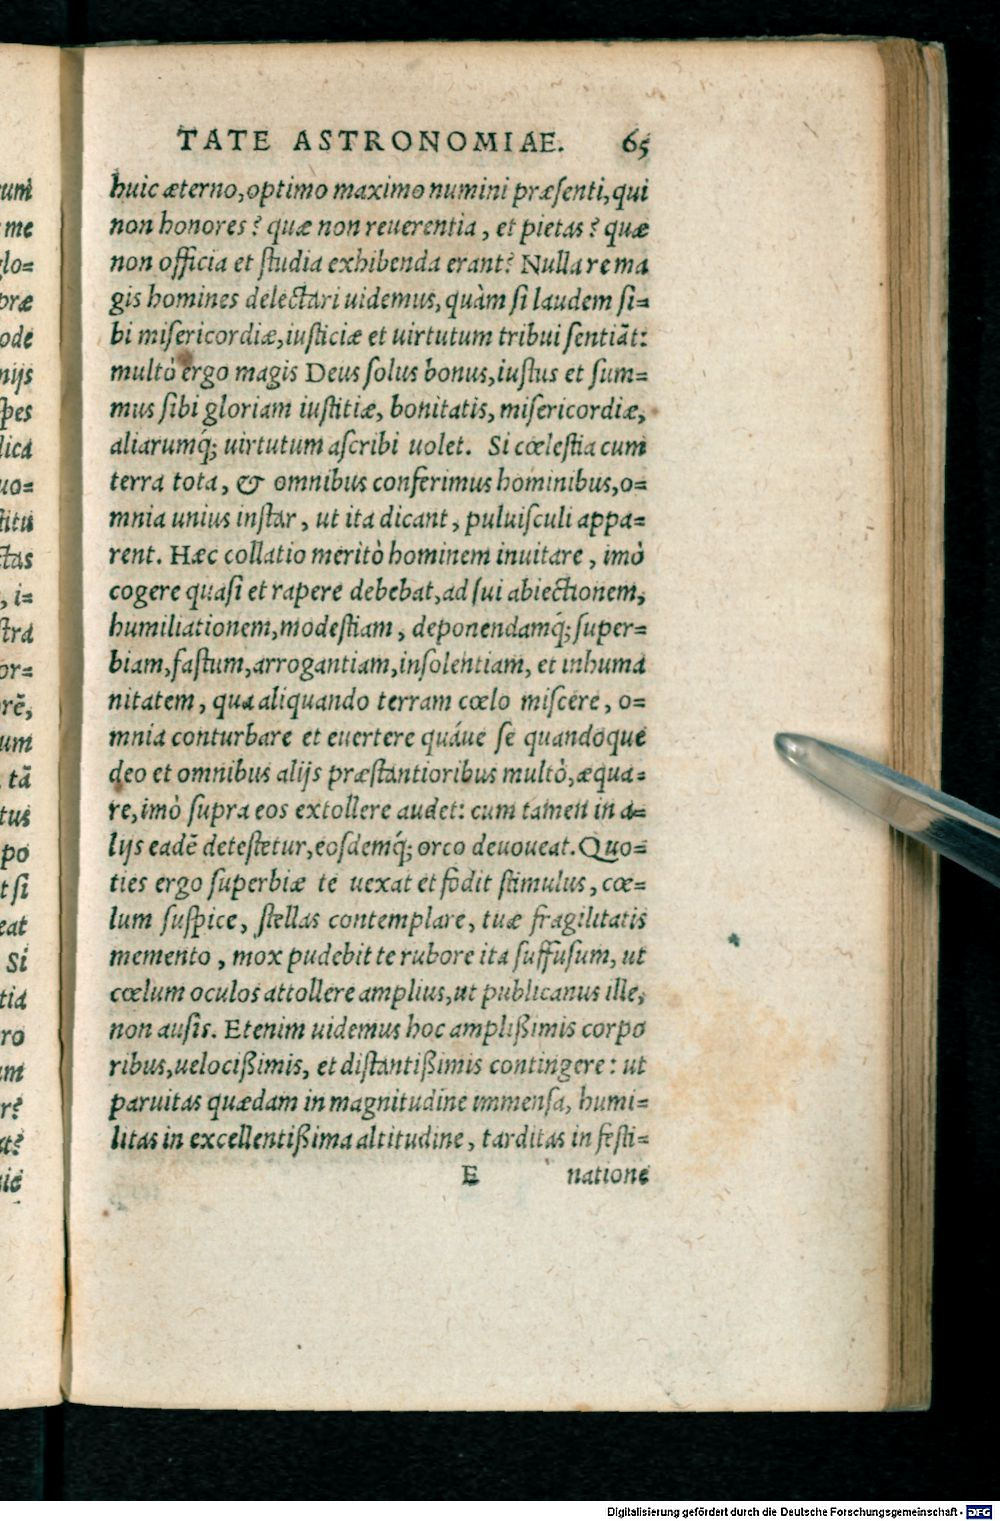 TATE ASTRONOMIAE. 65
huic æterno, optimo maximo numini præsenti, qui
non honores? quæ non reuerentia, et pietas? quæ
non officia et studia exhibenda erant? Nulla re ma
gis homines delectari uidemus, quàm si laudem si=
bi misericordiæ, iusticiæ et uirtutum tribui sentiãt:
multò ergo magis Deus solus bonus, iustus et sum=
mus sibi gloriam iustitiæ, bonitatis, misericordiæ,
aliarumq́; uirtutum ascribi uolet. Si cœlestia cum
terra tota, & omnibus conferimus hominibus, o=
mnia unius instar, ut ita dicant, puluisculi appa=
rent. Hæc collatio meritò hominem inuitare, imò
cogere quasi et rapere debebat, ad sui abiectionem,
humiliationem, modestiam, deponendamq́; super=
biam, fastum, arrogantiam, insolentiam, et inhuma
nitatem, qua aliquando terram cœlo miscere, o=
mnia conturbare et euertere quáue se quandoque
deo et omnibus alijs præstantioribus multò, æqua=
re, imò supra eos extollere audet: cum tamen in a=
lijs eadẽ detestetur, eosdemq́; orco deuoueat. Quo=
ties ergo superbiæ te uexat et fodit stimulus, cœ=
lum suspice, stellas contemplare, tuæ fragilitatis
memento, mox pudebit te rubore ita suffusum, ut
cœlum oculos attollere amplius, ut publicanus ille,
non ausis. Etenim uidemus hoc amplißimis corpo
ribus, uelocißimis, et distantißimis contingere: ut
paruitas quædam in magnitudine immensa, humi=
litas in excellentißima altitudine, tarditas in festi=
E natione
um
me
glo=
præ
ode
nijs
spes
lica
uo=
stitu
ctas
, i=
stra
or=
rẽ,
um
tã
tus
po
t si
eat
Si
tia
ro
um
r?
Digitalisierung gefördert durch die Deutsche Forschungsgemeinschaft - DFG